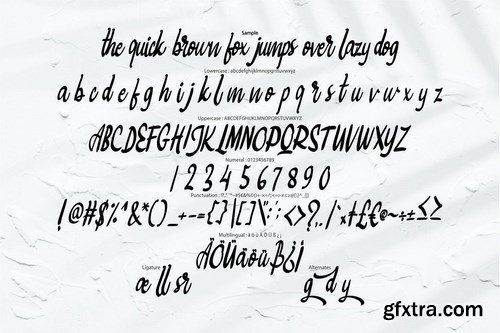 Sample
the quick brown fox jumps over lazy dog
Lowercase : abcdefghijklmnopqrstuvwxyz
a b c d e f g h i j k l m n o p q r s t u v w x y z
Uppercase : ABCDEFGHIJKLMNOPQRSTUVWXYZ
ABCDEFGHIJKLMNOPQRSTUVWXYZ
Numeral : 0123456789
1 2 3 4 5 6 7 8 9 0
Punctuation :
!@#$%^&*()_+-={}|[]\:;<>?,./
Multilingual : ä ö ü Ä Ö Ü ß ¿ ¡
ÄÖÜäöüß¿¡
Ligature Alternates
æ ll sr g d y
gfxtra.com